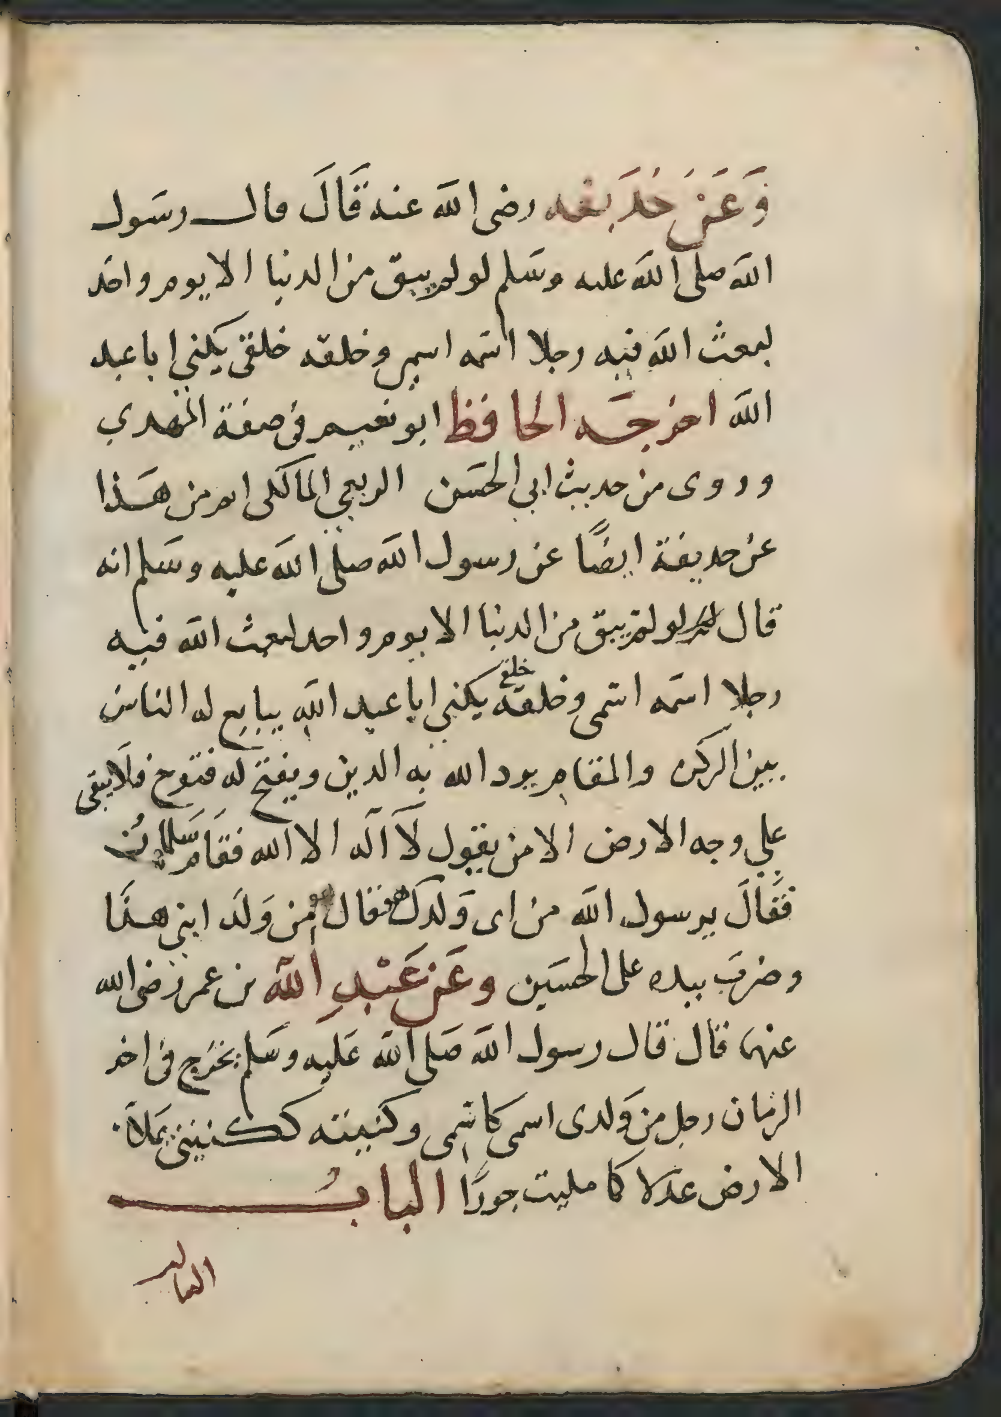 وَعَنْ حُذَيفه رضى الله عنه قَالَ قال رسَول
الله صلى الله عليه وسَلم لو لم يبق من الدنيا الا يوم واحَد
لبعث الله فيه رجلا اسمه اسمى وخلقه خلقى يكنى ابا عبد
الله اخرجَه الحافظ ابو نعيم فى صفة المهدي
وروى من حديث ابي الحسَن الربعي المالكى اتم من هَذا
عن حديفة ايضًا عن رسول الله صلى الله عليه وسَلم انه
قال لو لم يبق من الدنيا الا يوم واحد لبعث الله فيه
رجلا اسمه اسمى وخلقه خلقى يكنى ابا عبد الله يبايع له الناس
بين الركن والمقام يرد الله به الدين ويفتح له فتوح فلا يبقى
على وجه الارض الا من يقول لا اله الا الله فقام سَلمان
فقَالَ يرسول الله من اى وَلدك هو فقال من وَلَد ابنى هذَا
وضرَب بيده على الحسَين وعَن عَبْدِ الله بن عمر رضى الله
عنهما قال قال رسول الله صَلى الله عَليه وسَلم يخرج فى اخر
الزمان رجل من وَلدى اسمه كاسمى وكنيته ككنيتى يملأ
الارض عدلا كما مليت جورًا البابُ
الثالث